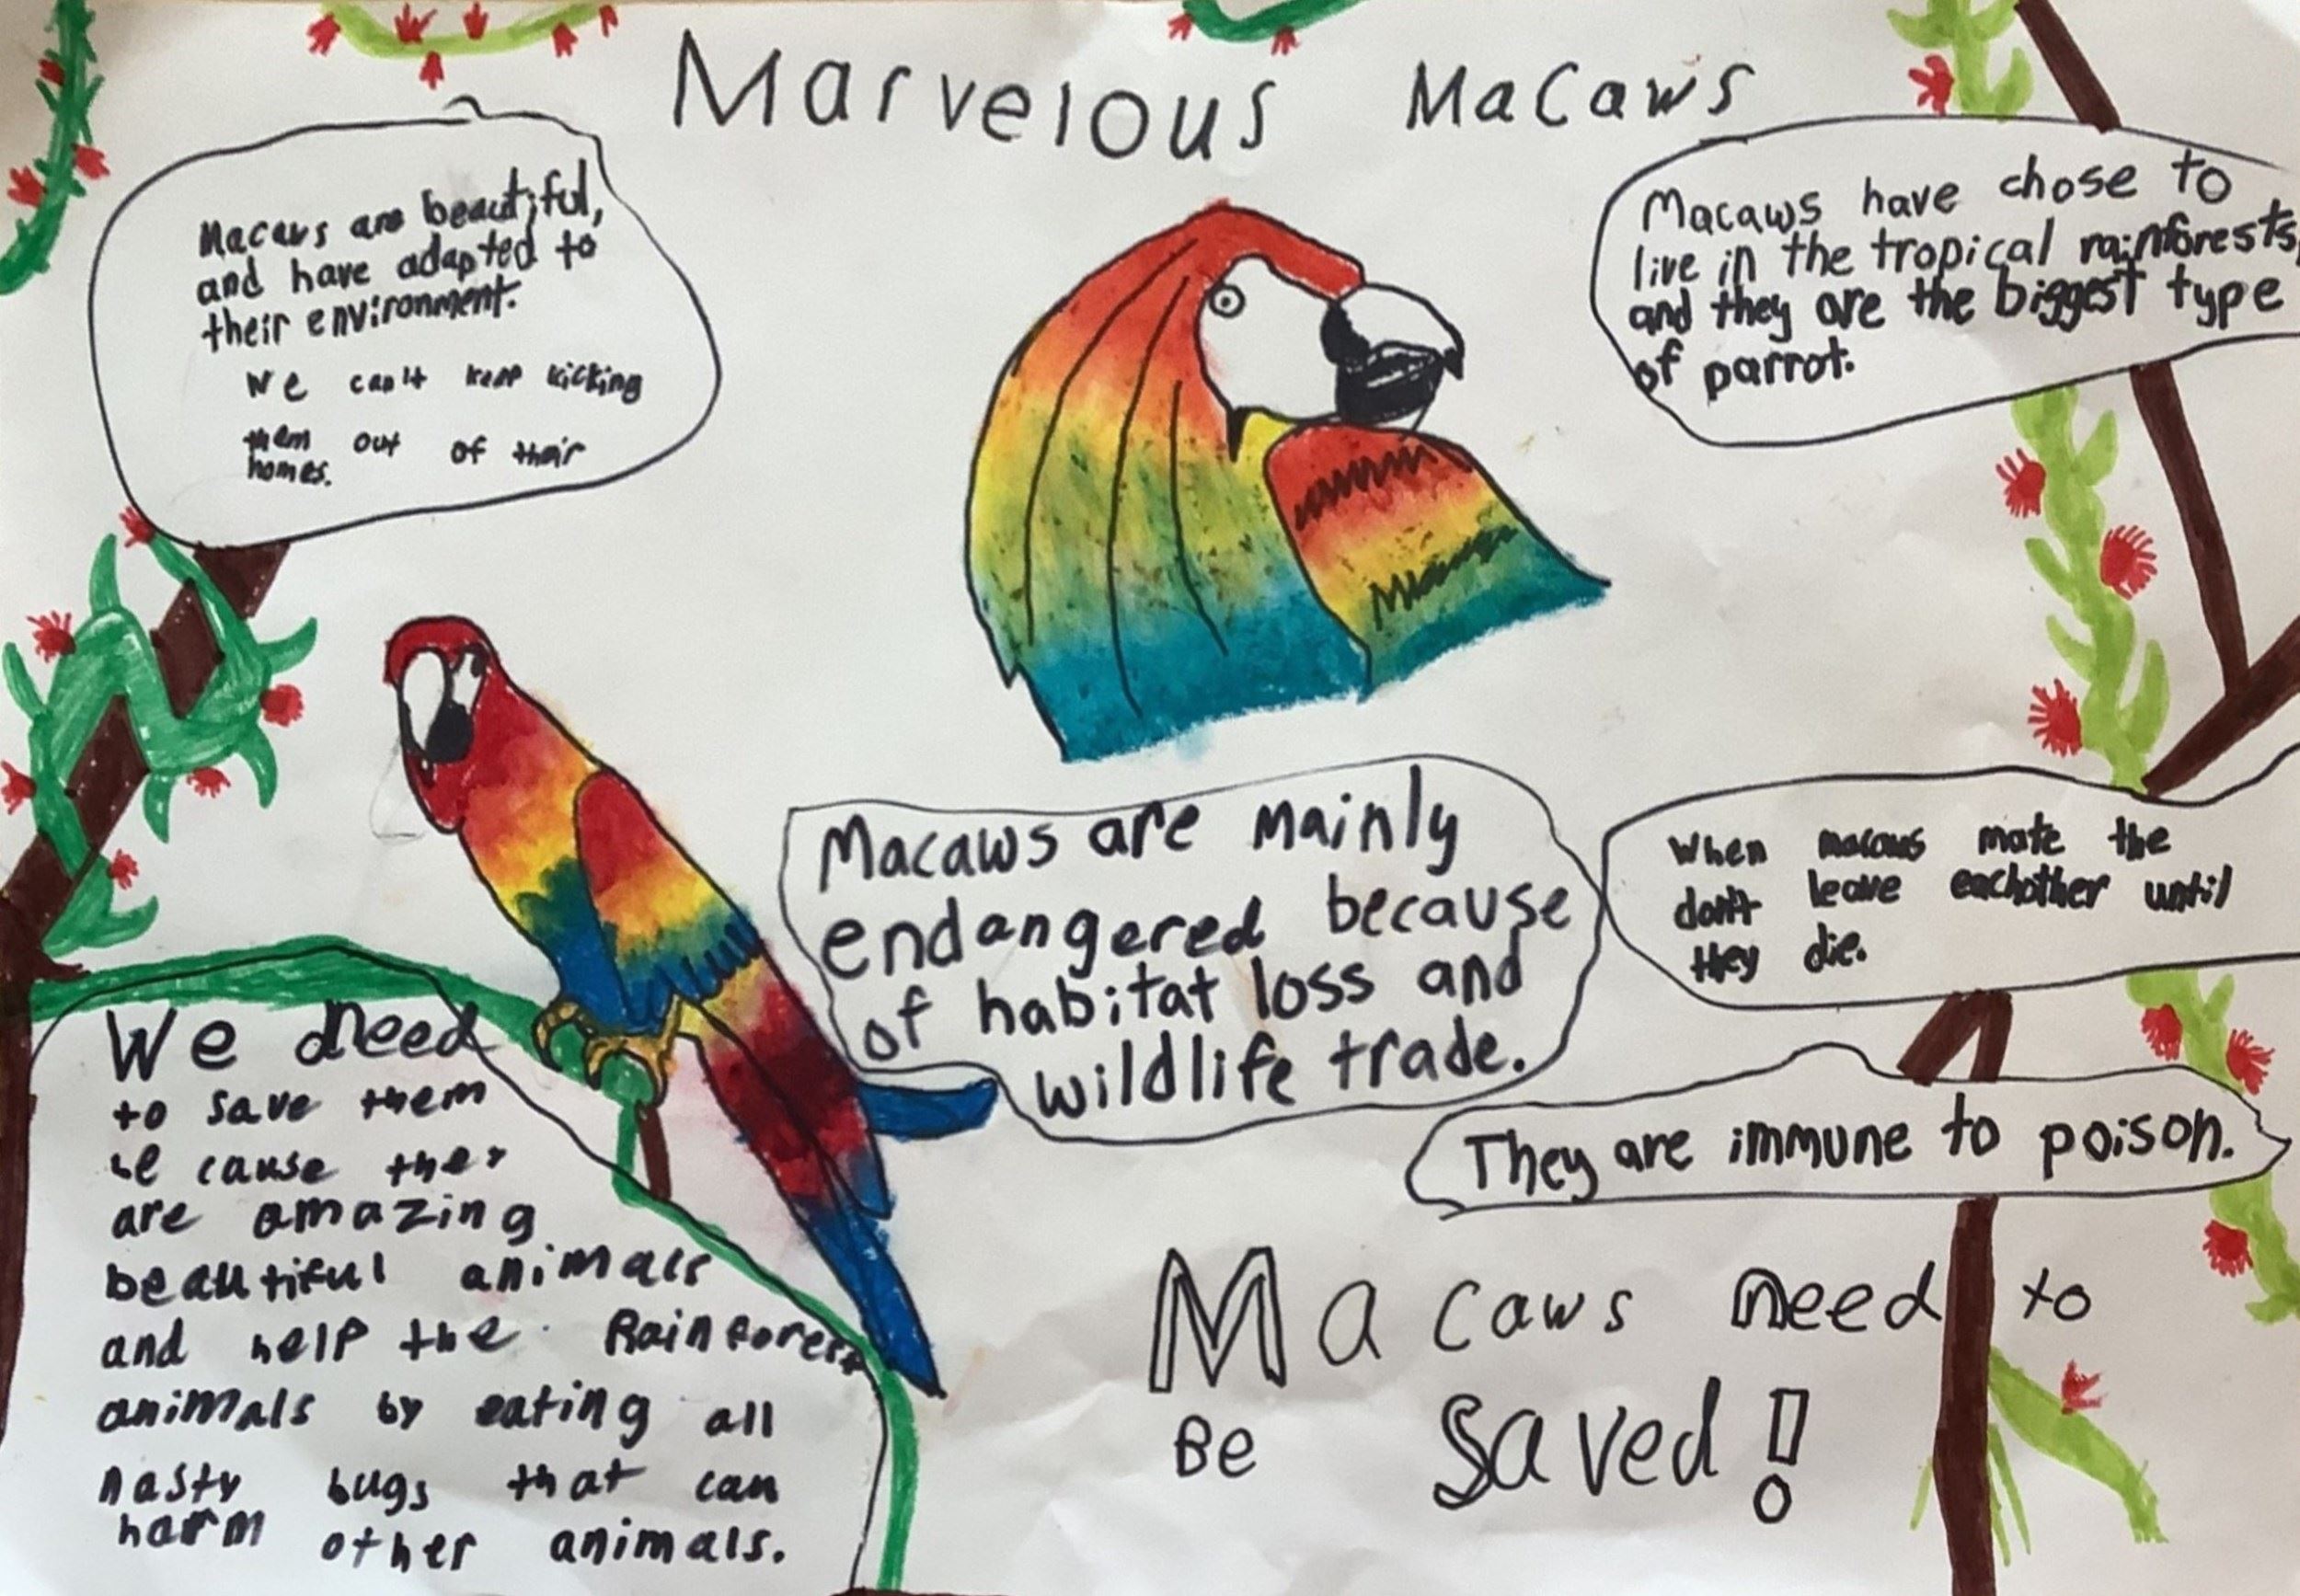 Marvelous Macaws
Macaws are beautiful,
and have adapted to
their environment.
We can't keep kicking
them out of their
homes.
Macaws have chose to
live in the tropical rainforests,
and they are the biggest type
of parrot.
Macaws are mainly
endangered because
of habitat loss and
wildlife trade.
When macaws mate the
don't leave eachother until
they die.
They are immune to poison.
We need
to save them
be cause they
are amazing
beautiful animals
and help the Rainforest
animals by eating all
nasty bugs that can
harm other animals.
Macaws need to
Be saved!